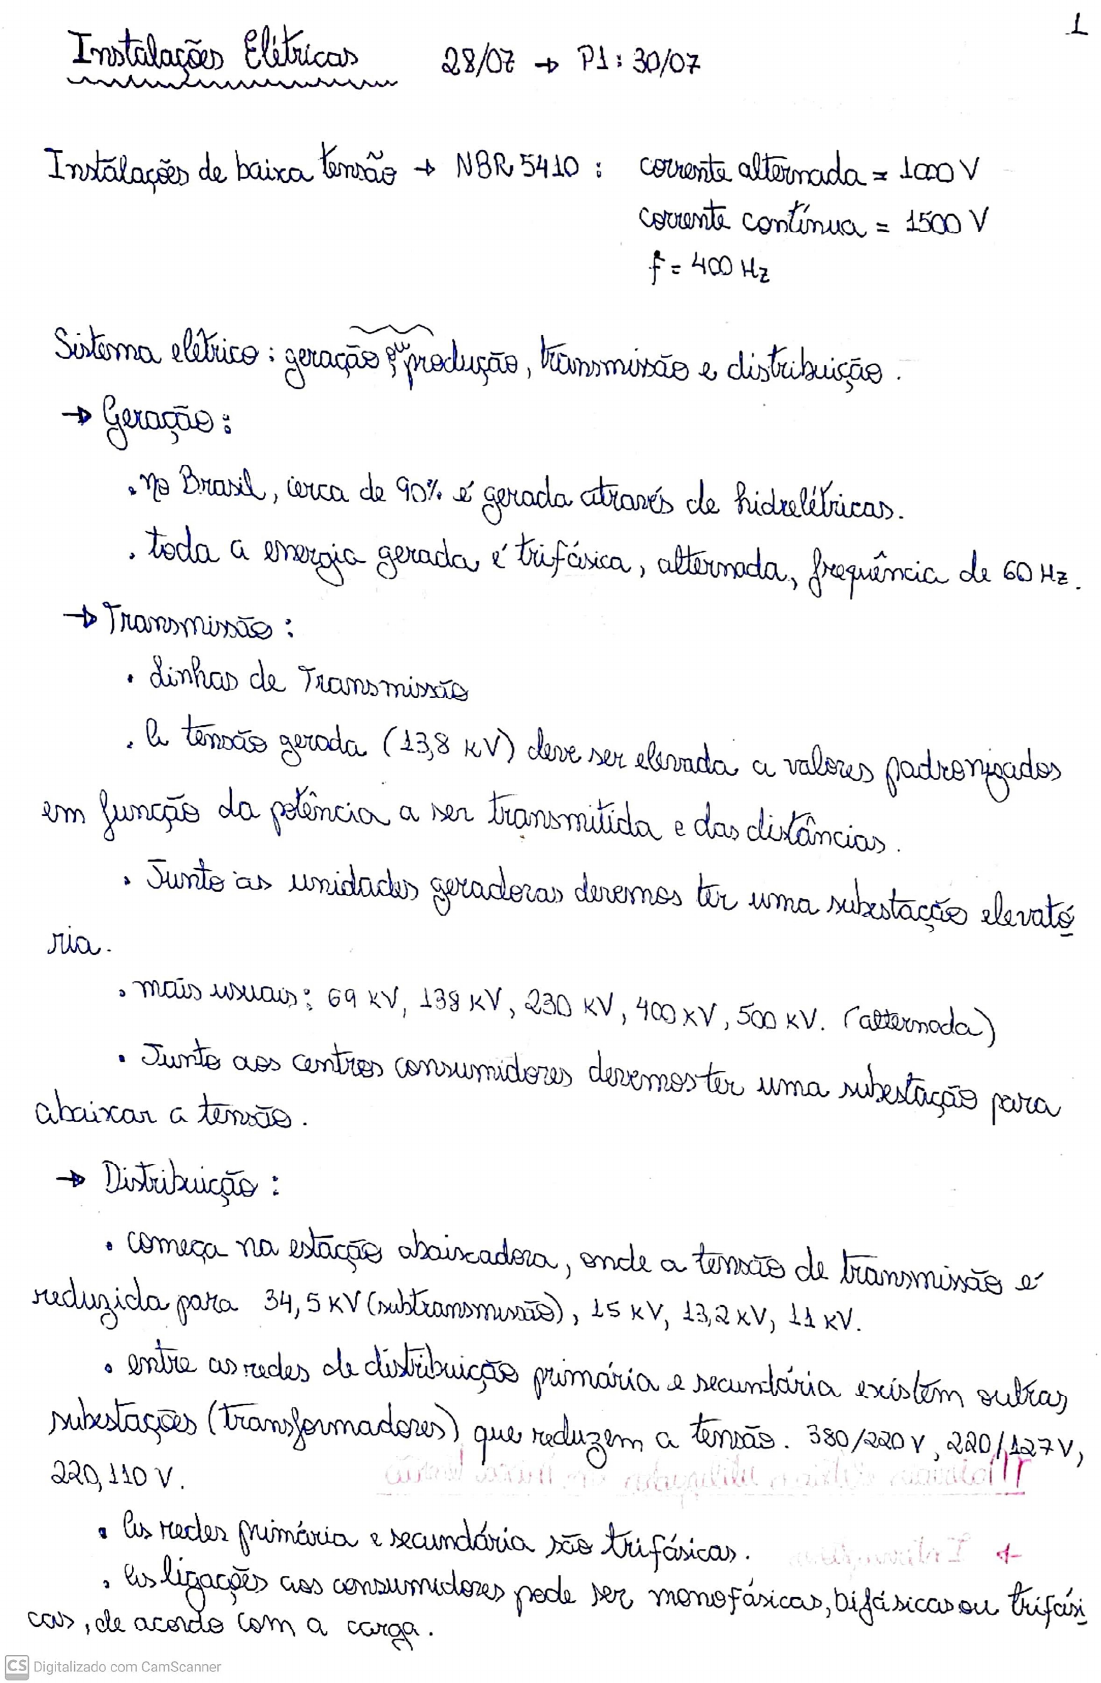 1
Instalações Elétricas 28/07 → P1: 30/07
Instalações de baixa tensão → NBR 5410 : corrente alternada = 1000 V
corrente contínua = 1500 V
f = 400 Hz
Sistema elétrico : geração ou produção, transmissão e distribuição.
→ Geração :
. no Brasil, cerca de 90% é gerada através de hidrelétricas.
. toda a energia gerada é trifásica, alternada, frequência de 60 Hz.
→ Transmissão :
. Linhas de Transmissão
. A tensão gerada (13,8 KV) deve ser elevada a valores padronizados
em função da potência a ser transmitida e das distâncias.
. Junto as unidades geradoras devemos ter uma subestação elevató
ria.
. mais usuais: 69 KV, 138 KV, 230 KV, 400 KV, 500 KV. (alternada)
. Junto aos centros consumidores devemos ter uma subestação para
abaixar a tensão.
→ Distribuição :
. começa na estação abaixadora, onde a tensão de transmissão é
reduzida para 34,5 KV (subtransmissão), 15 KV, 13,2 KV, 11 KV.
. entre as redes de distribuição primária e secundária existem outras
subestações (transformadores) que reduzem a tensão. 380/220 V, 220/127 V,
220,110 V.
. As redes primária e secundária são trifásicas.
. As ligações aos consumidores pode ser monofásicas, bifásicas ou trifási
cas, de acordo com a carga.
CS Digitalizado com CamScanner